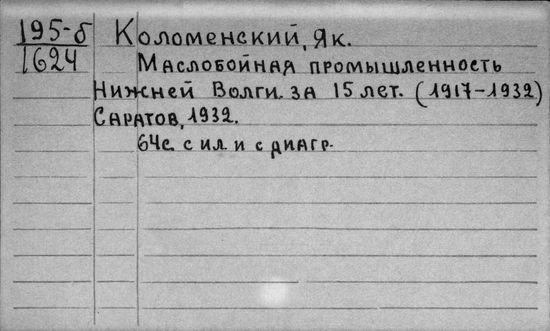 195-б Коломенский, Як.
1624 Маслобойная промышленность
Нижней Волги за 15 лет. (1917-1932)
Саратов, 1932.
64с. с ил. и с диагр.